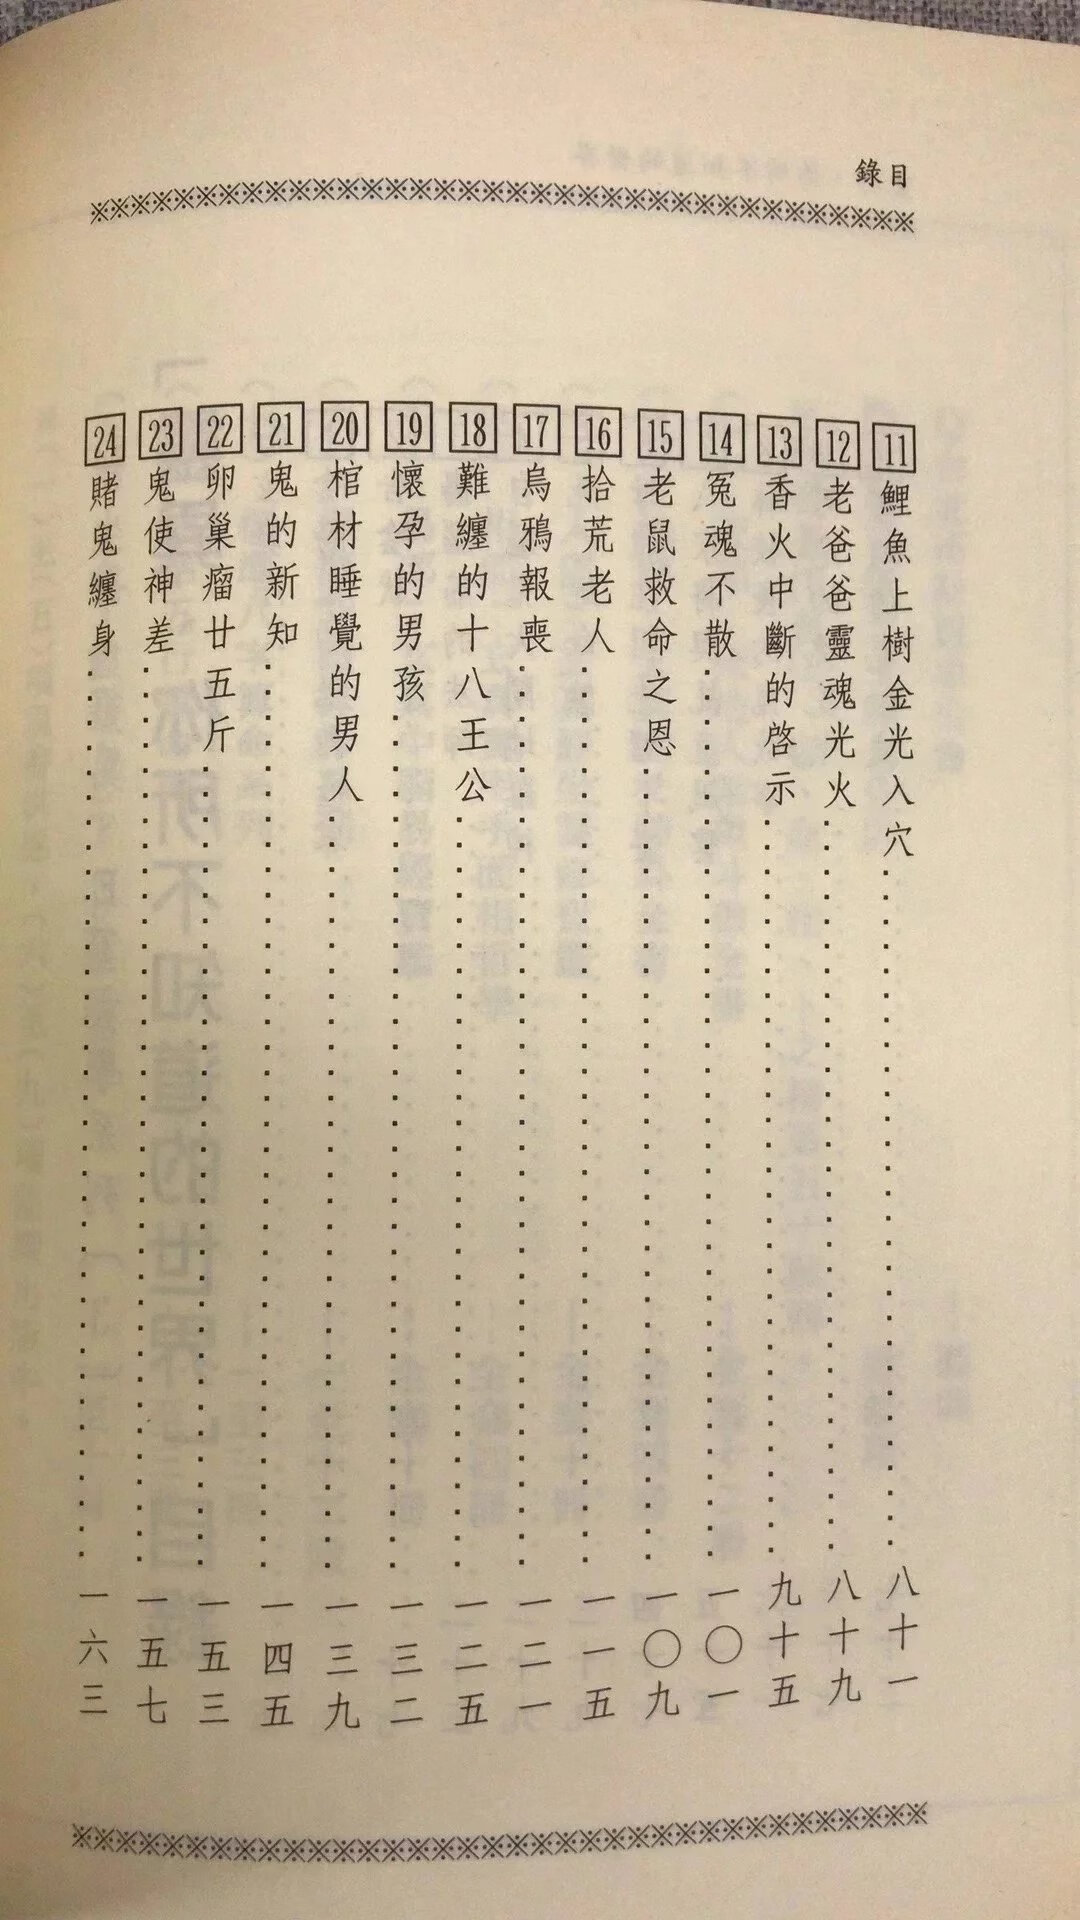 錄目
11鯉魚上樹金光入穴⋯⋯⋯⋯⋯⋯⋯⋯⋯⋯八十一
12老爸爸靈魂光火⋯⋯⋯⋯⋯⋯⋯⋯⋯⋯八十九
13香火中斷的啓示⋯⋯⋯⋯⋯⋯⋯⋯⋯⋯九十五
14冤魂不散⋯⋯⋯⋯⋯⋯⋯⋯⋯⋯一〇一
15老鼠救命之恩⋯⋯⋯⋯⋯⋯⋯⋯⋯⋯一〇九
16拾荒老人⋯⋯⋯⋯⋯⋯⋯⋯⋯⋯一一五
17烏鴉報喪⋯⋯⋯⋯⋯⋯⋯⋯⋯⋯一二一
18難纏的十八王公⋯⋯⋯⋯⋯⋯⋯⋯⋯⋯一二五
19懷孕的男孩⋯⋯⋯⋯⋯⋯⋯⋯⋯⋯一三二
20棺材睡覺的男人⋯⋯⋯⋯⋯⋯⋯⋯⋯⋯一三九
21鬼的新知⋯⋯⋯⋯⋯⋯⋯⋯⋯⋯一四五
22卵巢瘤廿五斤⋯⋯⋯⋯⋯⋯⋯⋯⋯⋯一五三
23鬼使神差⋯⋯⋯⋯⋯⋯⋯⋯⋯⋯一五七
24賭鬼纏身⋯⋯⋯⋯⋯⋯⋯⋯⋯⋯一六三